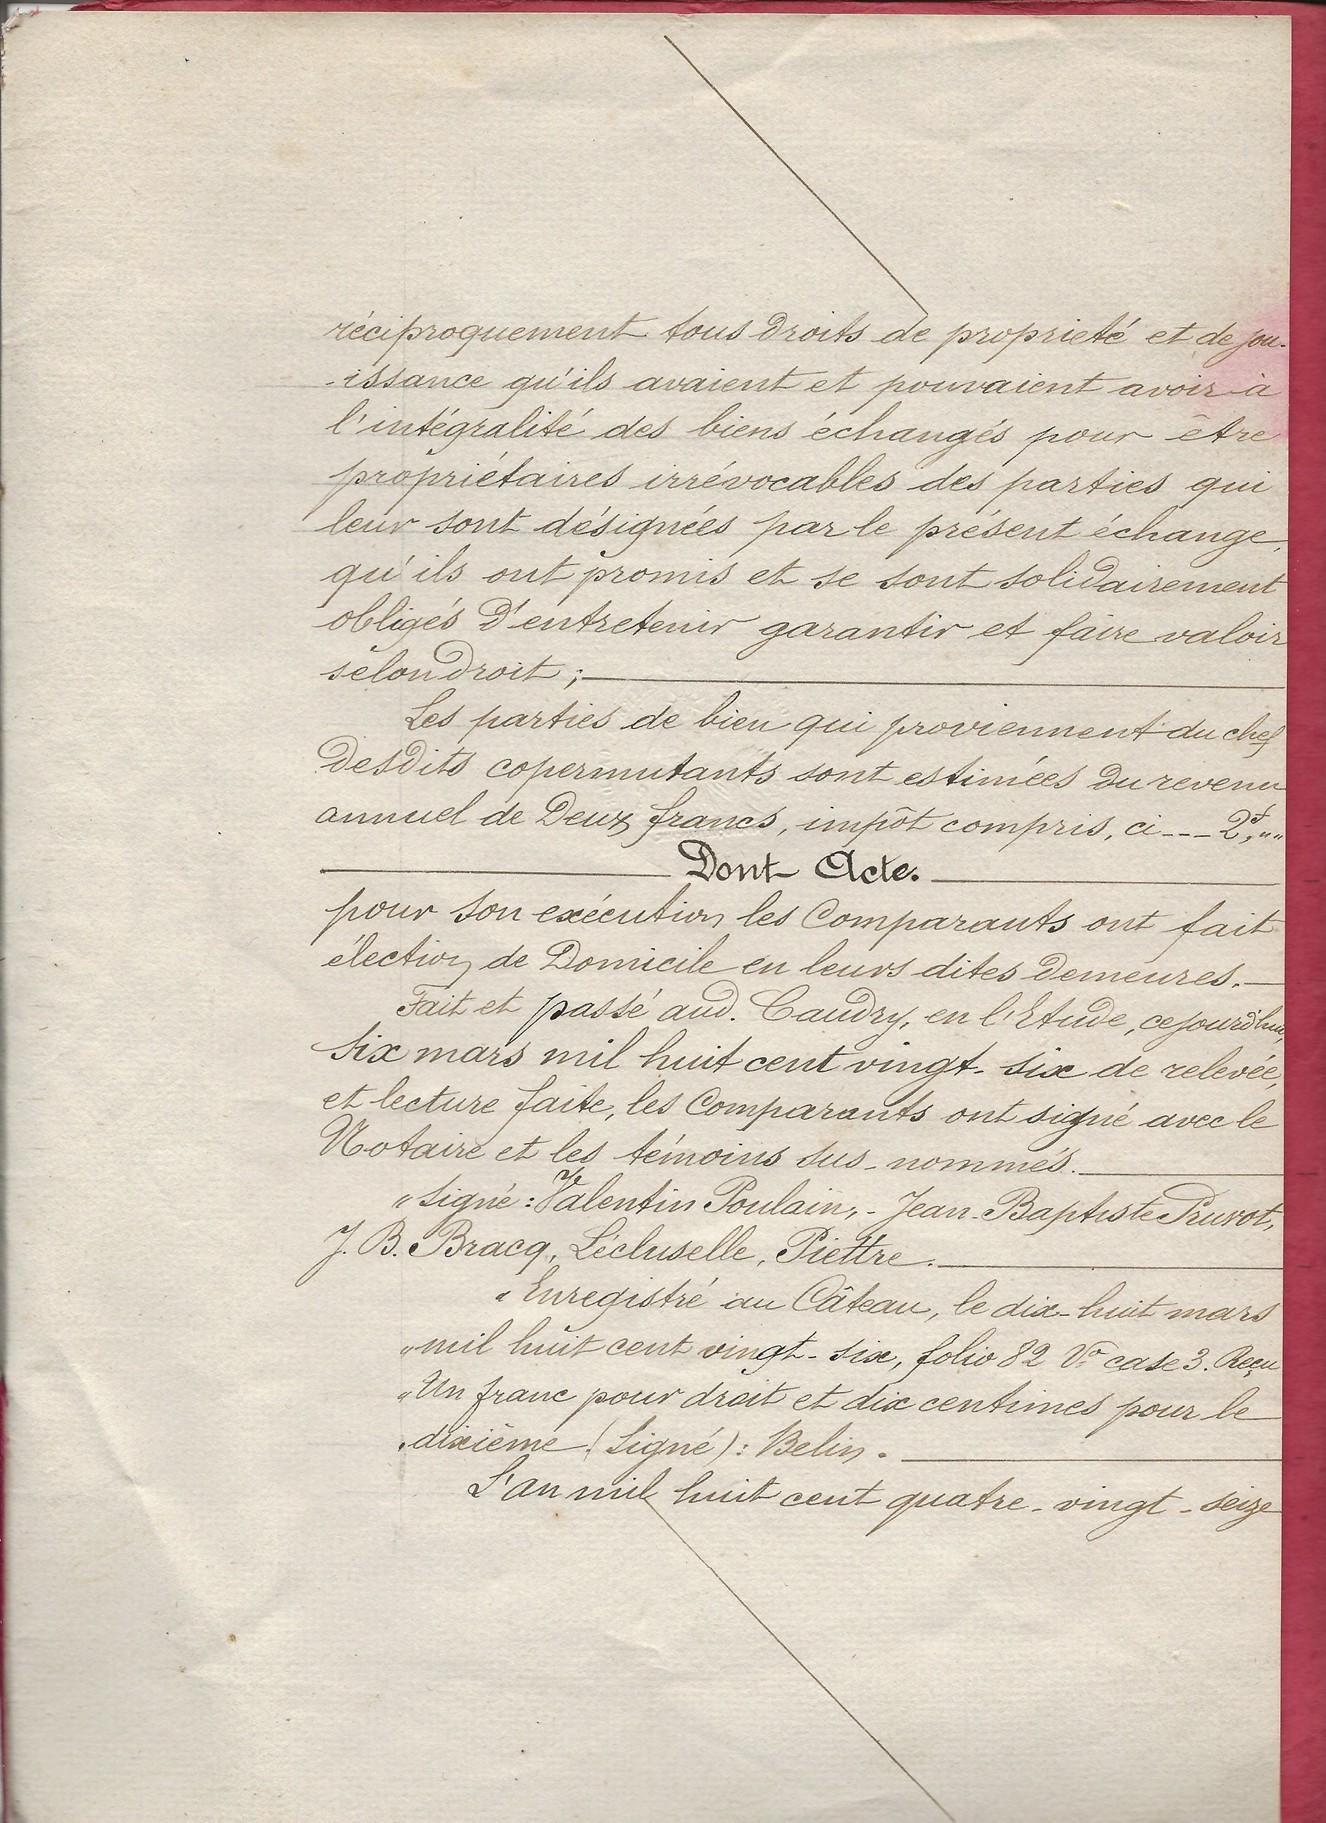 réciproquement tous droits de propriété et de jou-
-issance qu'ils avaient et pouvaient avoir à
l'intégralité des biens échangés pour être
propriétaires irrévocables des parties qui
leur sont désignées par le présent échange,
qu'ils ont promis et se sont solidairement
obligés d'entretenir garantir et faire valoir
selon droit ;
Les parties de bien qui proviennent du chef
desdits copermutants sont estimées du revenu
annuel de Deux francs, impôt compris, ci --- 2f,""
Dont Acte.
pour son exécution les Comparants ont fait
élection de Domicile en leurs dites Demeures.
Fait et passé aud. Caudry, en l'Etude, cejourd'hui,
Six mars mil huit cent vingt-six de relevée,
et lecture faite, les Comparants ont signé avec le
Notaire et les témoins sus-nommés.
"Signé : Valentin Poulain, - Jean-Baptiste Pruvot,
J. B. Bracq, Lécluselle, Piettre.
"Enregistré au Câteau, le dix-huit mars
"mil huit cent vingt-six, folio 82 Vo case 3. Reçu
"Un franc pour droit et dix centimes pour le
"dixième (Signé) : Belin.
L'an mil huit cent quatre-vingt-seize